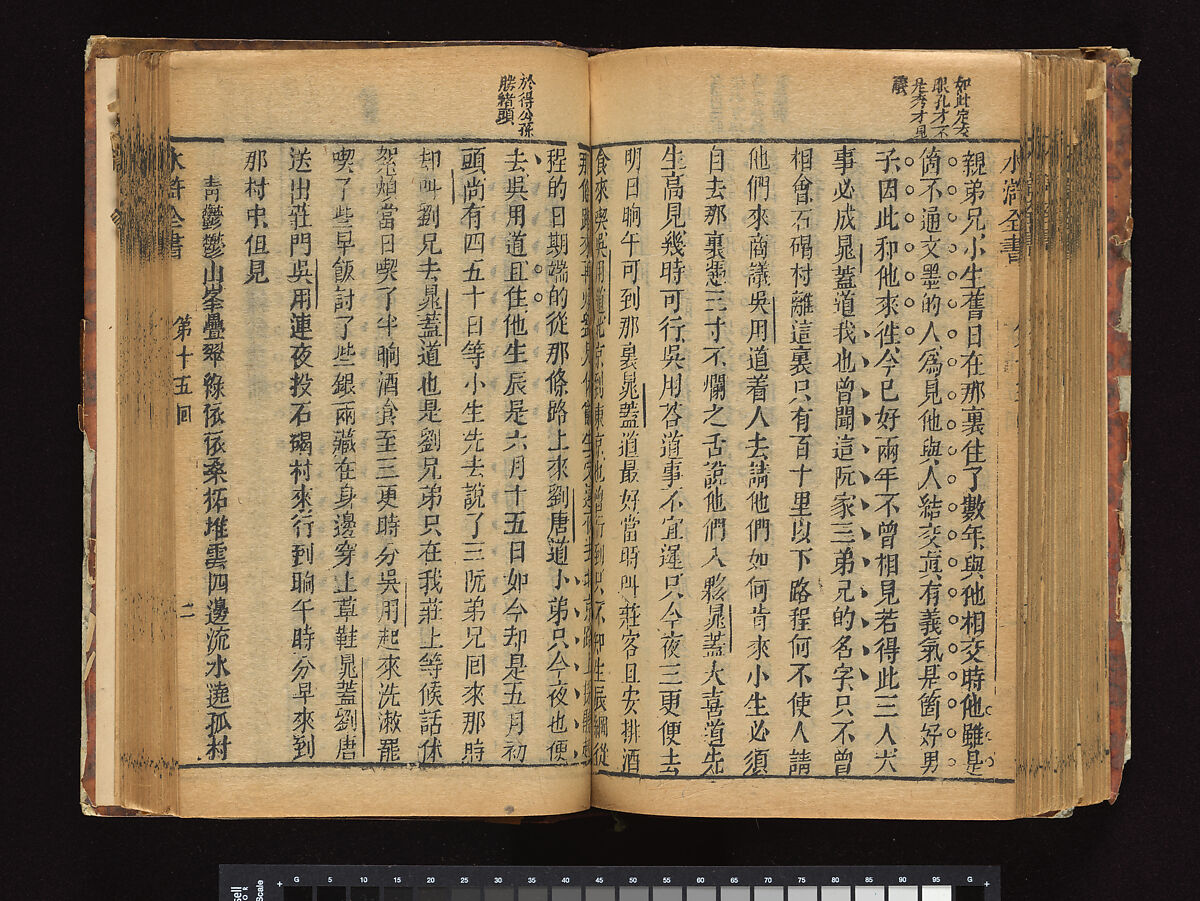 如此定交
眼孔才不
是秀才見
識
水滸全書
親弟兄小生舊日在那裏住了數年與他相交時他雖是
箇不通文墨的人爲見他與人結交眞有義氣是箇好男
子因此和他來往今已好兩年不曾相見若得此三人大
事必成晁蓋道我也曾聞這阮家三弟兄的名字只不曾
相會石碣村離這裏只有百十里以下路程何不使人請
他們來商議吳用道着人去請他們如何肯來小生必須
自去那裏憑三寸不爛之舌說他們入夥晁蓋大喜道先
生高見幾時可行吳用荅道事不宜遲只今夜三更便去
明日晌午可到那裏晁蓋道最好當時叫莊客且安排酒
食來喫吳用道北京到東京也曾行到只不知生辰綱從
於得公孫
勝緒頭
程的日期端的從那條路上來劉唐道小弟只今夜也便
去吳用道且住他生辰是六月十五日如今却是五月初
頭尚有四五十日等小生先去說了三阮弟兄回來那時
却叫劉兄去晁蓋道也是劉兄弟只在我莊上等候話休
絮煩當日喫了半晌酒食至三更時分吳用起來洗漱罷
喫了些早飯討了些銀兩藏在身邊穿上草鞋晁蓋劉唐
送出莊門吳用連夜投石碣村來行到晌午時分早來到
那村中但見
青鬱鬱山峯疊翠綠依依桑柘堆雲四邊流水遶孤村
水滸全書
第十五回
二
G 5 10 15 20 25 30 35 40 45 50 55 60 65 70 75 80 85 90 95 G
Scale